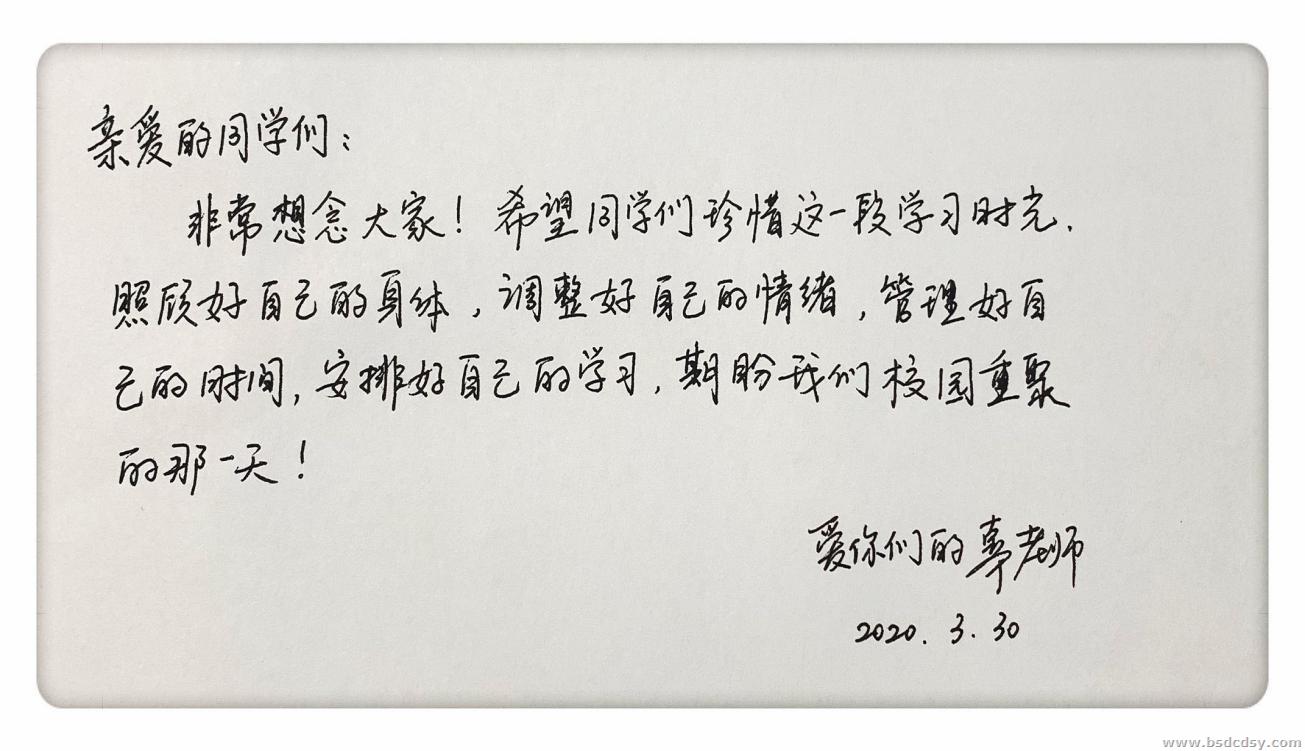 亲爱的同学们：
非常想念大家！希望同学们珍惜这一段学习时光.
照顾好自己的身体，调整好自己的情绪，管理好自
己的时间，安排好自己的学习，期盼我们校园重聚
的那一天！
爱你们的辜老师
2020.3.30
www.bsdcdsy.com